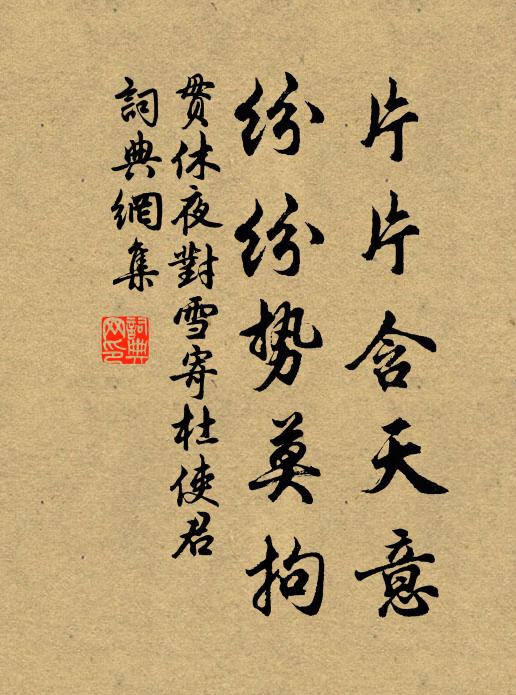 片片含天意
纷纷势莫拘
贯休夜對雪寄杜使君
詞典網集
詞典网印